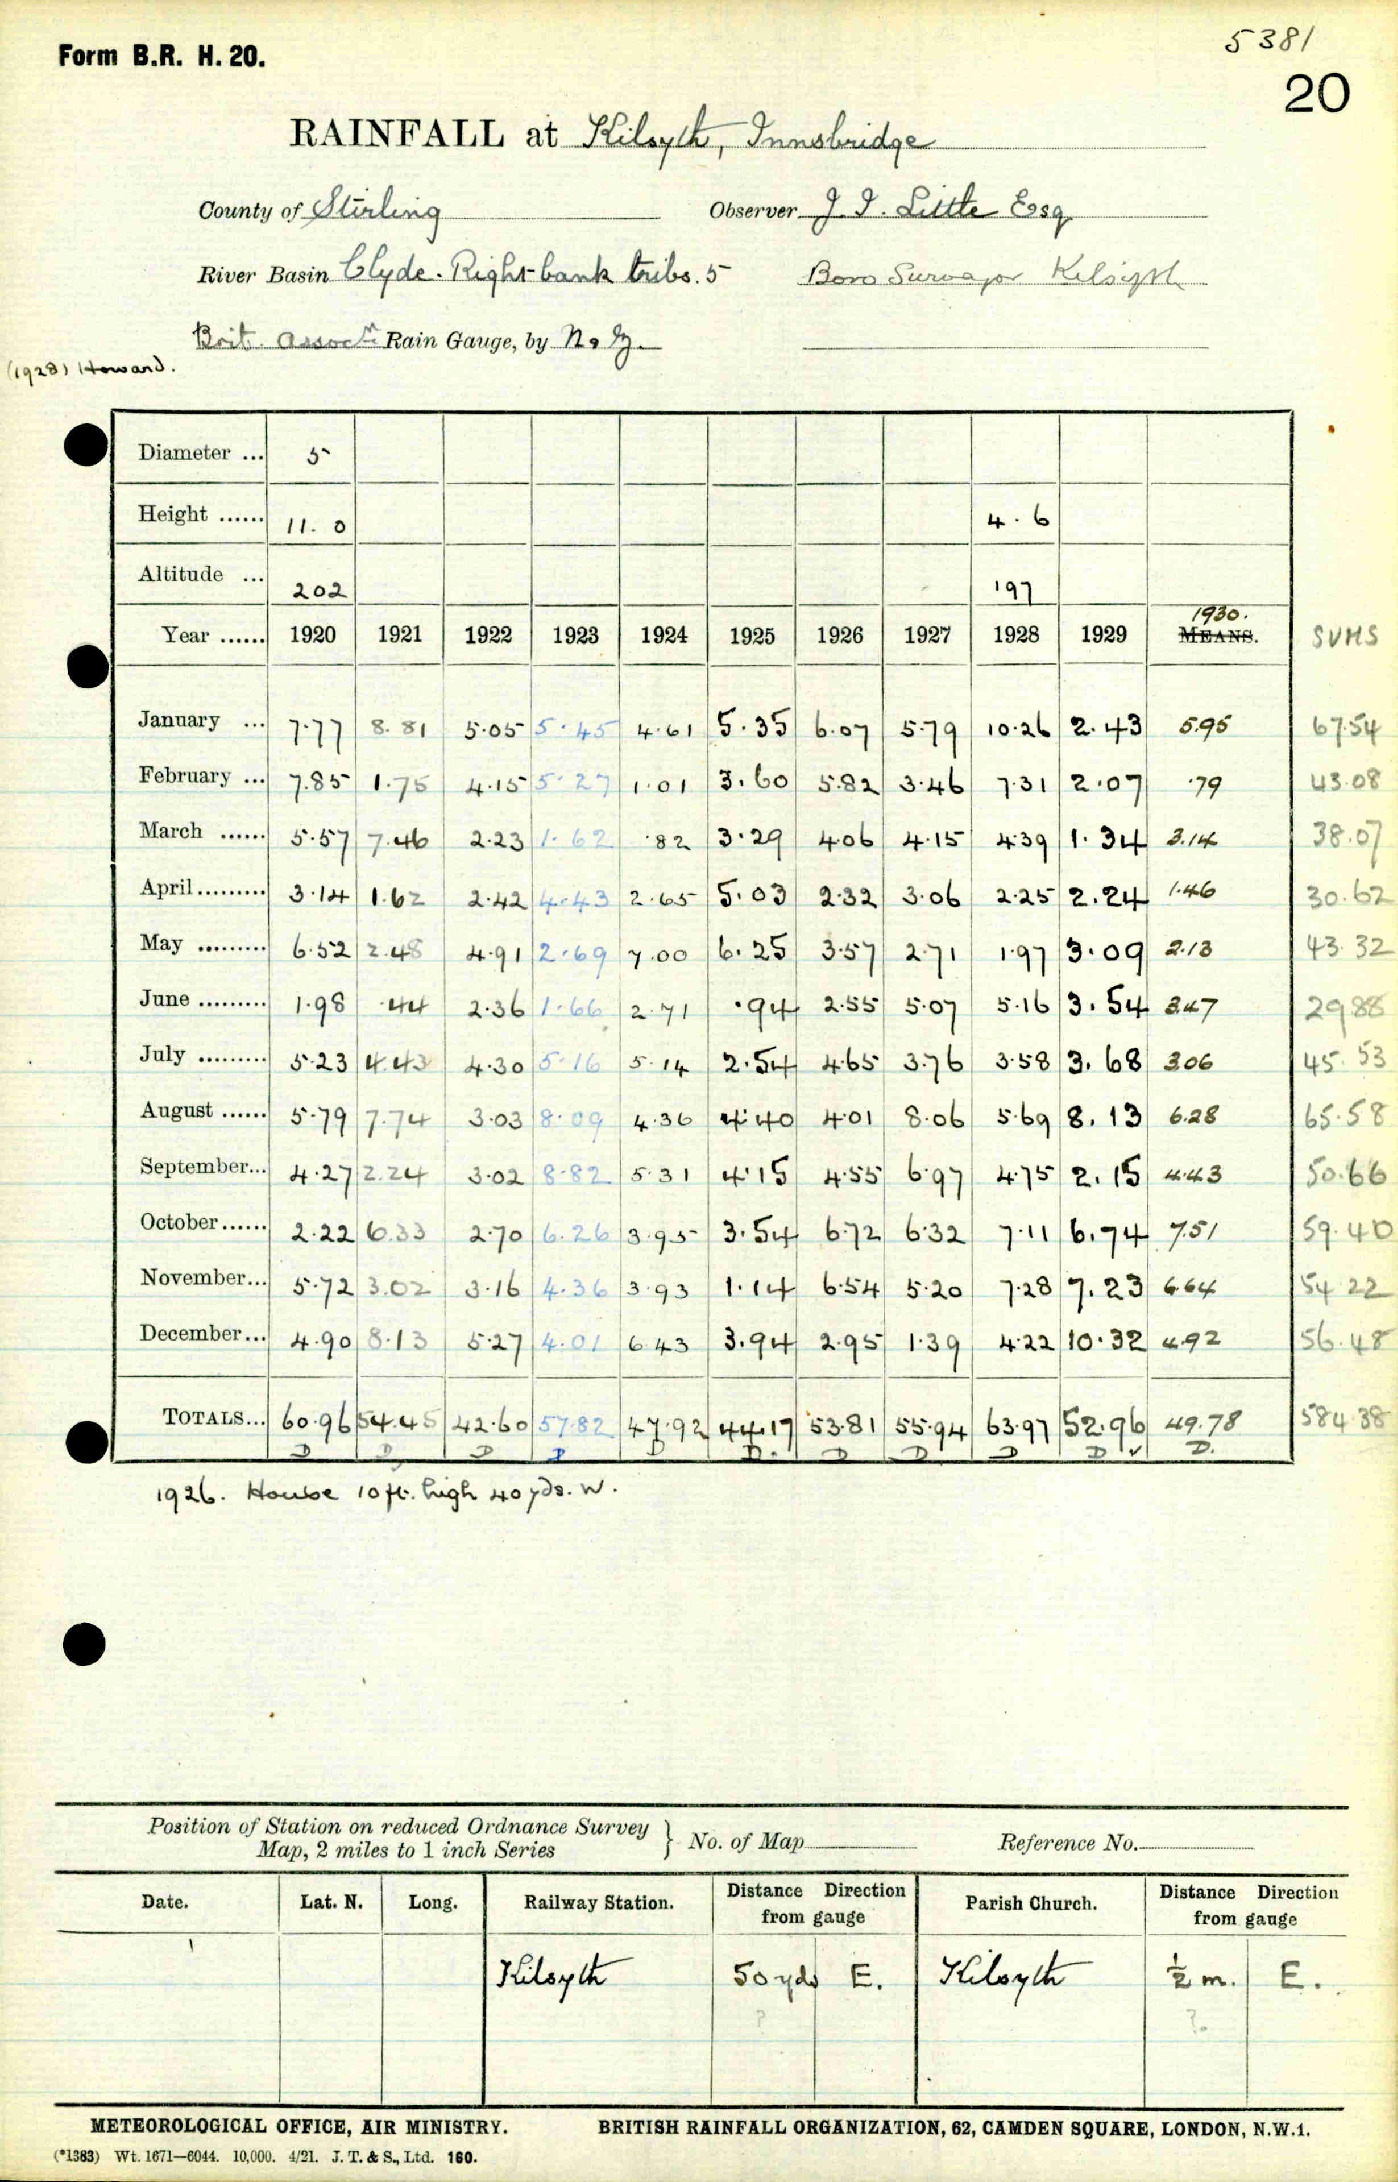 5381
Form B.R. H. 20.
20
RAINFALL at Kilsyth, Innsbridge
County of Stirling Observer J. I. Little Esq
River Basin Clyde. Right bank tribs. 5 Boro Surveyor Kilsyth
Brit. Assocn Rain Gauge, by N. & Z.
(1928) Howard.
Diameter ... 5
Height ...... 11. 0 4. 6
Altitude ... 202 197
1930.
Year ...... 1920 1921 1922 1923 1924 1925 1926 1927 1928 1929 MEANS. SUMS
January ... 7.77 8.81 5.05 5.45 4.61 5.35 6.07 5.79 10.26 2.43 5.95 67.54
February ... 7.85 1.75 4.15 5.27 1.01 3.60 5.82 3.46 7.31 2.07 .79 43.08
March ...... 5.57 7.46 2.23 1.62 .82 3.29 4.06 4.15 4.39 1.34 3.14 38.07
April ......... 3.14 1.62 2.42 4.43 2.65 5.03 2.32 3.06 2.25 2.24 1.46 30.62
May ......... 6.52 2.48 4.91 2.69 7.00 6.25 3.57 2.71 1.97 3.09 2.13 43.32
June ......... 1.98 .44 2.36 1.66 2.71 .94 2.55 5.07 5.16 3.54 3.47 29.88
July ......... 5.23 4.43 4.30 5.16 5.14 2.54 4.65 3.76 3.58 3.68 3.06 45.53
August ...... 5.79 7.74 3.03 8.09 4.36 4.40 4.01 8.06 5.69 8.13 6.28 65.58
September... 4.27 2.24 3.02 8.82 5.31 4.15 4.55 6.97 4.75 2.15 4.43 50.66
October...... 2.22 6.33 2.70 6.26 3.95 3.54 6.72 6.32 7.11 6.74 7.51 59.40
November... 5.72 3.02 3.16 4.36 3.93 1.14 6.54 5.20 7.28 7.23 6.64 54.22
December... 4.90 8.13 5.27 4.01 6.43 3.94 2.95 1.39 4.22 10.32 4.92 56.48
TOTALS... 60.96 54.45 42.60 57.82 47.92 44.17 53.81 55.94 63.97 52.96 49.78 584.38
D D D D D D. D D D D ✓ D.
1926. House 10 ft. high 40 yds. W.
Position of Station on reduced Ordnance Survey
Map, 2 miles to 1 inch Series } No. of Map Reference No.
Date. Lat. N. Long. Railway Station. Distance Direction from gauge Parish Church. Distance Direction from gauge
Kilsyth 50 yds E. Kilsyth ½ m. E.
? ?.
METEOROLOGICAL OFFICE, AIR MINISTRY. BRITISH RAINFALL ORGANIZATION, 62, CAMDEN SQUARE, LONDON, N.W.1.
(*1383) Wt. 1671—6044. 10,000. 4/21. J. T. & S., Ltd. 160.